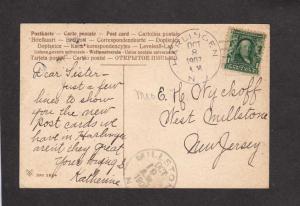 Postkarte — Carte postale — Post card — Cartolina postale
Briefkaart — Brefkort — Correspondenzkarte — Dopisnice
Dopisnica — Karta korespondencyjna — Levelező-Lap
Weltpostverein — Union postale universelle
Tarjeta postal — ОТКРЫТОЕ ПИСЬМО
HARLINGEN
OCT
8
1907
N.J.
Dear Sister —
Just a few
lines to show
you the new
Post cards we
have in Harlingen
aren't they great
Your loving S.
Katherine
Mrs E. K. Wyckoff
West Millstone
New Jersey
MILLSTONE
OCT